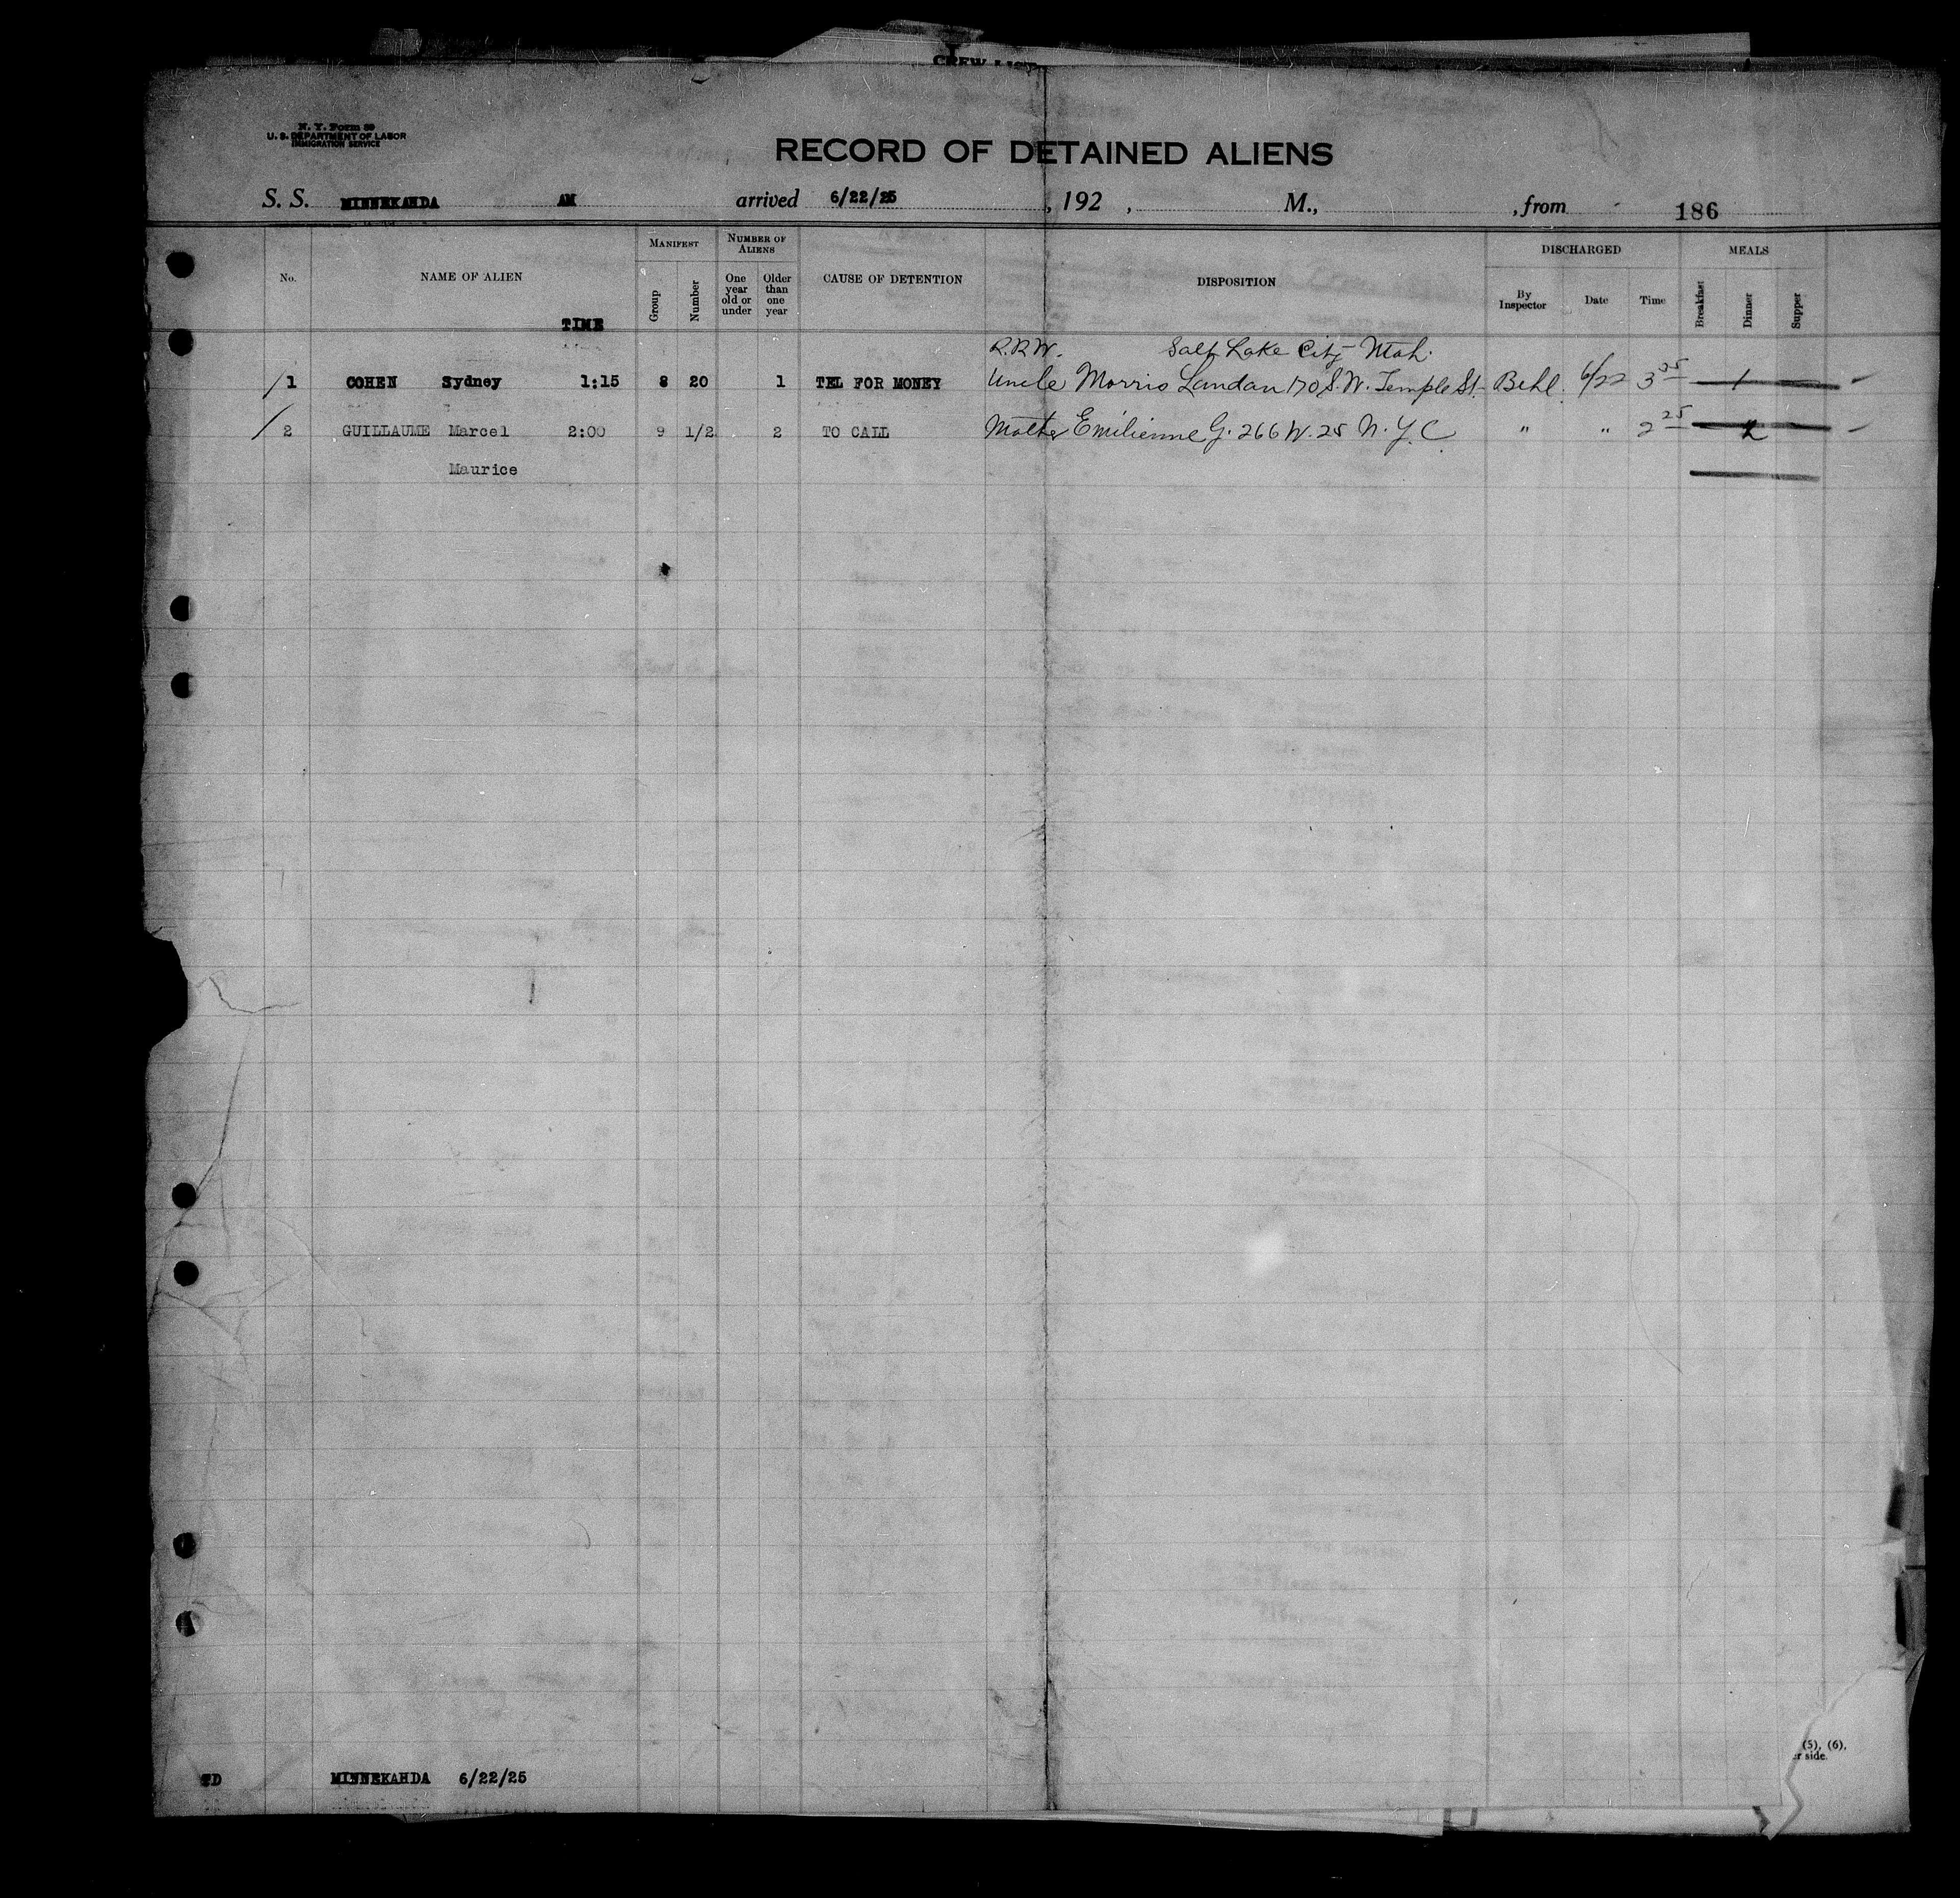 CREW LIST
N. Y. Form
U. S. DEPARTMENT OF LABOR
IMMIGRATION SERVICE
RECORD OF DETAINED ALIENS
S. S. MINNEKAHDA AM arrived 6/22/25 , 192 , M., , from 186
No. NAME OF ALIEN TIME MANIFEST Group Number NUMBER OF ALIENS One year old or under Older than one year CAUSE OF DETENTION DISPOSITION DISCHARGED By Inspector Date Time MEALS Breakfast Dinner Supper
R.R.W. Salt Lake City Utah.
1 COHEN Sydney 1:15 8 20 1 TEL FOR MONEY Uncle Morris Landau 170 S.W. Temple St. Behl. 6/22 3 05 1
2 GUILLAUME Marcel 2:00 9 1/2 2 TO CALL Mother Emilienne G. 266 W. 25 N.Y.C. " " 2 25 2
Maurice
(5), (6),
er side.
TD MINNEKAHDA 6/22/25